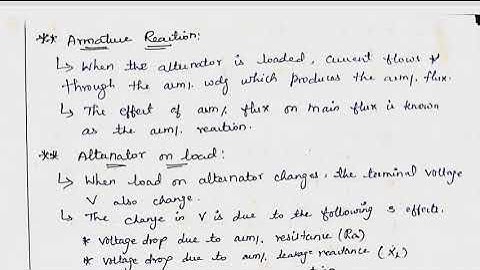 ** Armature Reaction:
↳ When the alternator is loaded, current flows
through the arm/. wdg which produces the arm/. flux.
↳ The effect of arm/. flux on main flux is known
as the arm/. reaction.
** Alternator on load:
↳ When load on alternator changes, the terminal voltage
V also change.
↳ The change in V is due to the following 3 effects.
* voltage drop due to arm/. resistance (Ra)
* voltage drop due to arm/. leakage reactance (XL)